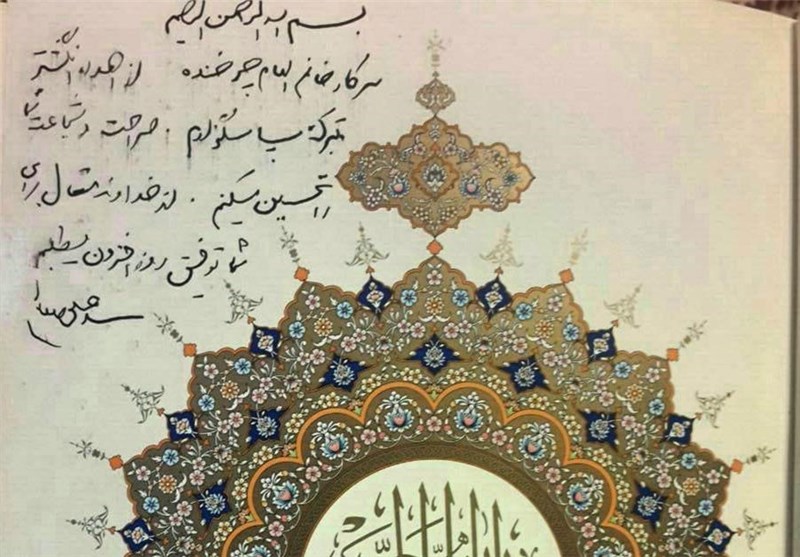 بسم الله الرحمن الرحیم
سرکار خانم الهام چرخنده از اهداء انگشتر
متبرکه سپاسگزارم. صراحت و شجاعت شما
را تحسین میکنم. از خداوند متعال برای
شما توفیق روز افزون میطلبم
سید